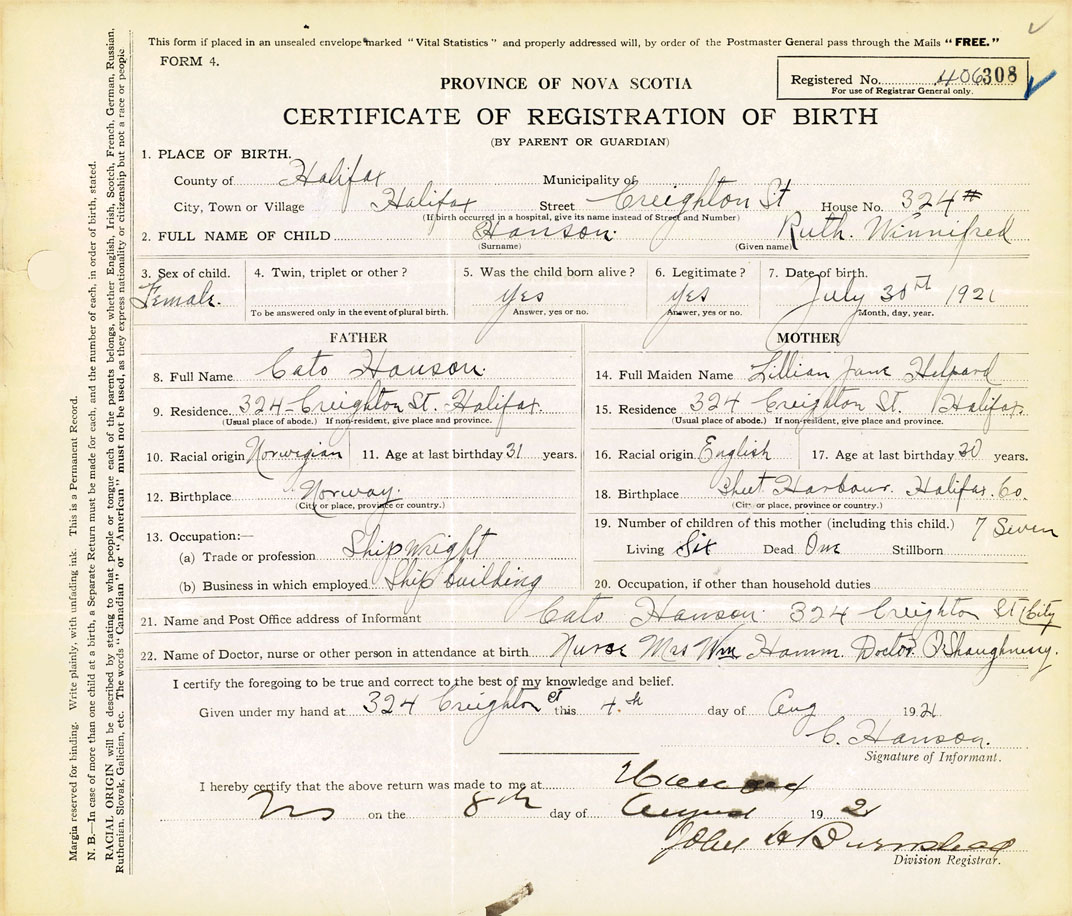 This form if placed in an unsealed envelope marked "Vital Statistics" and properly addressed will, by order of the Postmaster General pass through the Mails "FREE."
FORM 4.
Registered No. 406308
For use of Registrar General only.
PROVINCE OF NOVA SCOTIA
CERTIFICATE OF REGISTRATION OF BIRTH
(BY PARENT OR GUARDIAN)
1. PLACE OF BIRTH.
County of Halifax Municipality of
City, Town or Village Halifax Street Creighton St House No. 324#
(If birth occurred in a hospital, give its name instead of Street and Number)
2. FULL NAME OF CHILD Hanson Ruth. Winnifred
(Surname) (Given name)
3. Sex of child. 4. Twin, triplet or other? 5. Was the child born alive? 6. Legitimate? 7. Date of birth.
Female. yes yes July 30 1921
To be answered only in the event of plural birth. Answer, yes or no. Answer, yes or no. Month, day, year.
FATHER MOTHER
8. Full Name Cato Hanson. 14. Full Maiden Name Lillian Jane
9. Residence 324 Creighton St. Halifax. 15. Residence 324 Creighton St. Halifax.
(Usual place of abode.) If non-resident, give place and province. (Usual place of abode.) If non-resident, give place and province.
10. Racial origin Norwegian 11. Age at last birthday 31 years. 16. Racial origin English 17. Age at last birthday 30 years.
12. Birthplace Norway. 18. Birthplace Sheet Harbour. Halifax. Co.
(City or place, province or country.) (City or place, province or country.)
13. Occupation:— 19. Number of children of this mother (including this child.) 7 Seven
(a) Trade or profession Ship wright Living Six Dead One Stillborn
(b) Business in which employed Ship building 20. Occupation, if other than household duties
21. Name and Post Office address of Informant Cato Hanson 324 Creighton St City
22. Name of Doctor, nurse or other person in attendance at birth Nurse Mrs Wm Hamm. Doctor. O'Shaughnessy.
I certify the foregoing to be true and correct to the best of my knowledge and belief.
Given under my hand at 324 Creighton St this 4th day of Aug 1921
C. Hanson.
Signature of Informant.
I hereby certify that the above return was made to me at
NS on the 8th day of August 1921
John
Division Registrar.
Margin reserved for binding. Write plainly, with unfading ink. This is a Permanent Record.
N. B.—In case of more than one child at a birth, a Separate Return must be made for each, and the number of each, in order of birth, stated.
RACIAL ORIGIN will be described by stating to what people or tongue each of the parents belongs, whether English, Irish, Scotch, French, German, Russian,
Ruthenian, Slovak, Galician, etc. The words "Canadian" or "American" must not be used, as they express nationality or citizenship but not a race or people